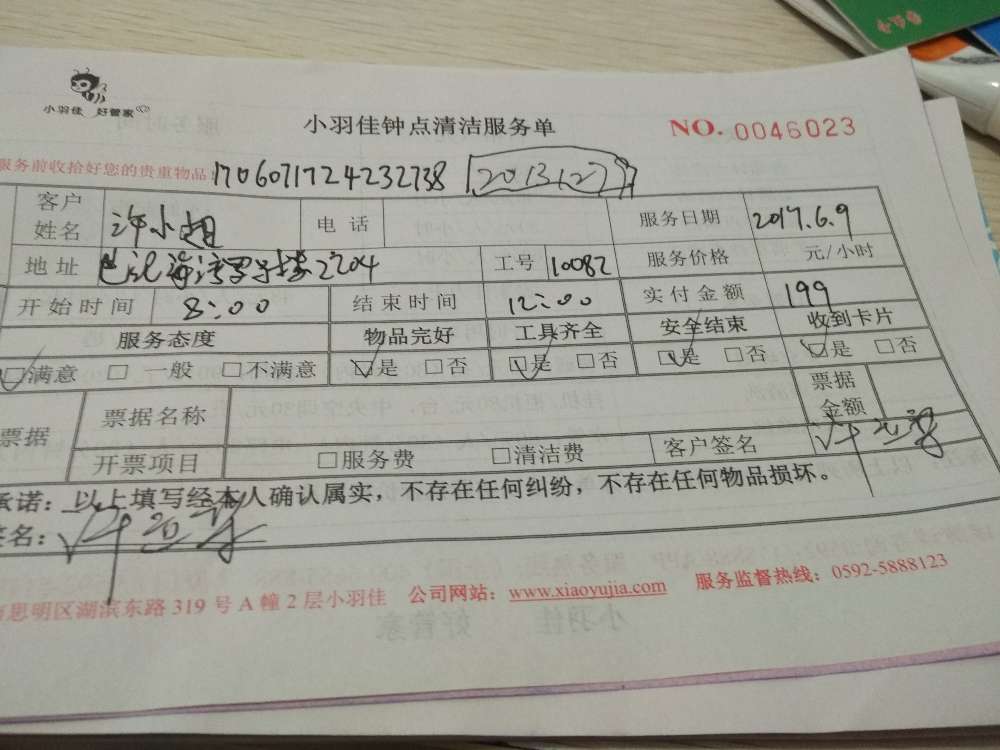 小羽佳 好管家
小羽佳钟点清洁服务单
NO. 0046023
服务前收拾好您的贵重物品: 1706071724232738
客户姓名 许小姐 电话 服务日期 2017.6.9
地址 2204 工号 10082 服务价格 元/小时
开始时间 8:00 结束时间 12:00 实付金额 199
服务态度 物品完好 工具齐全 安全结束 收到卡片
☑满意 □ 一般 □不满意 ☑是 □否 ☑是 □否 ☑是 □否 ☑是 □否
票据 票据名称 票据金额
开票项目 □服务费 □清洁费 客户签名
承诺: 以上填写经本人确认属实，不存在任何纠纷，不存在任何物品损坏。
签名:
思明区湖滨东路 319 号 A 幢 2 层小羽佳 公司网站: www.xiaoyujia.com 服务监督热线: 0592-5888123